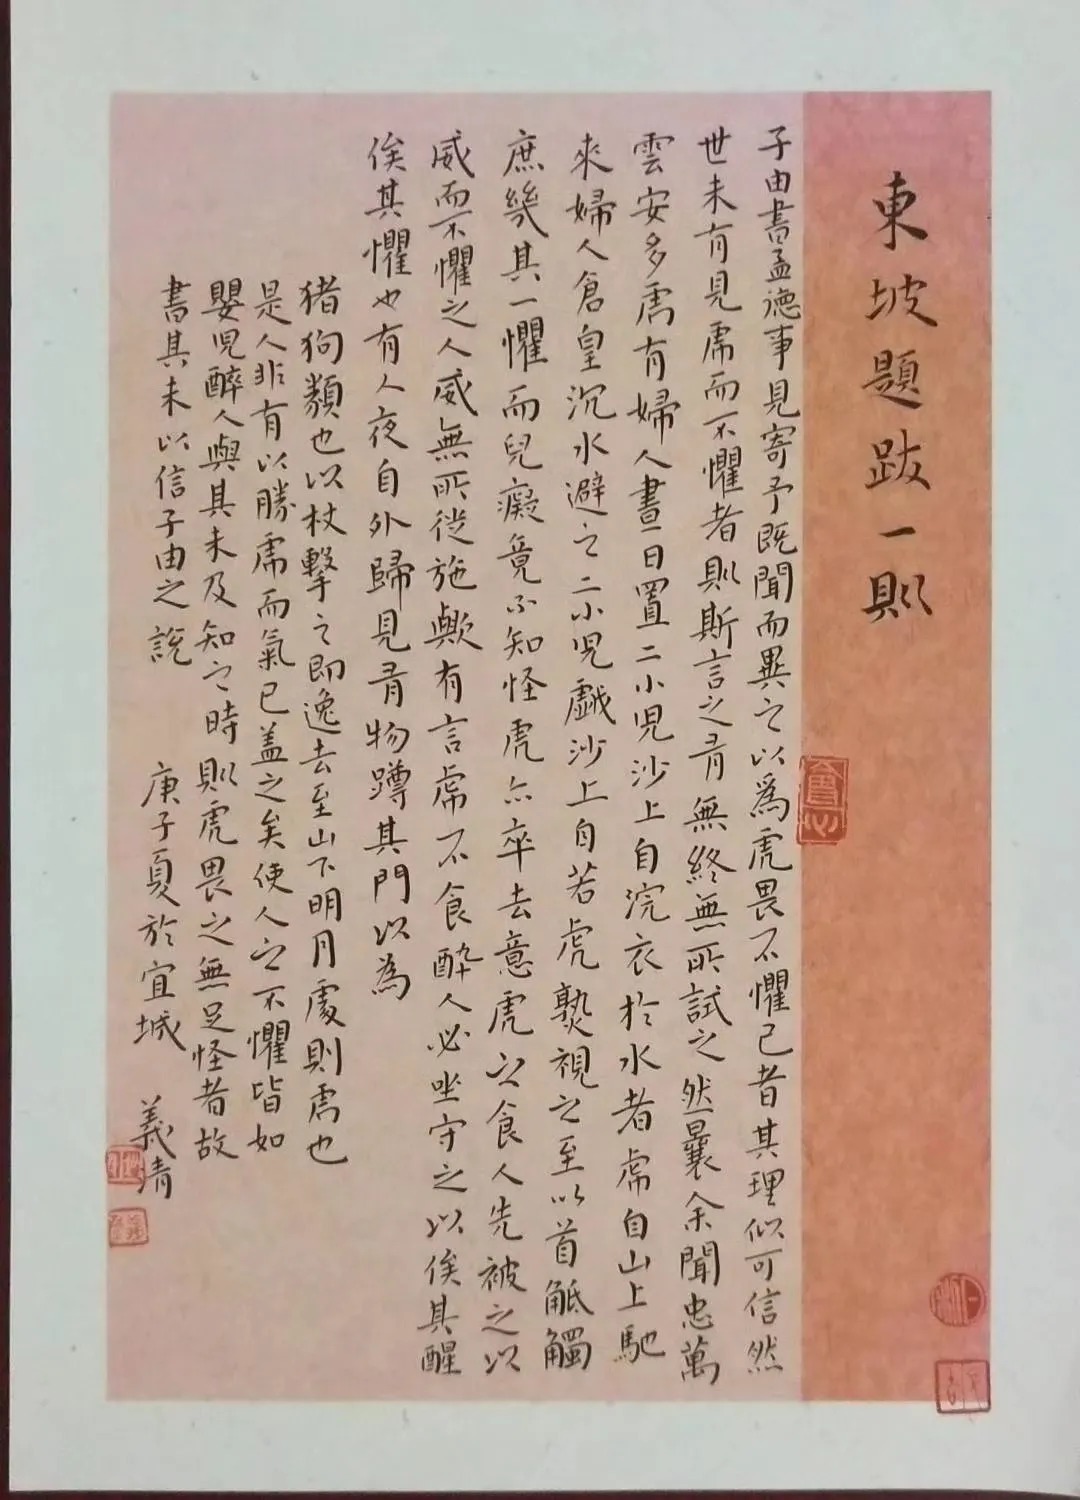 東坡題跋一則
子由書孟德事見寄予既聞而異之以爲虎畏不懼己者其理似可信然
世未有見虎而不懼者則斯言之有無終無所試之然曩余聞忠萬
雲安多虎有婦人晝日置二小兒沙上自浣衣於水者虎自山上馳
來婦人倉皇沉水避之二小兒戲沙上自若虎熟視之至以首觝觸
庶幾其一懼而兒癡竟不知怪虎亦卒去意虎之食人先被之以
威而不懼之人威無所從施歟有言虎不食醉人必坐守之以俟其醒
俟其懼也有人夜自外歸見有物蹲其門以為
猪狗類也以杖擊之即逸去至山下明月處則虎也
是人非有以勝虎而氣已蓋之矣使人之不懼皆如
嬰兒醉人與其未及知之時則虎畏之無足怪者故
書其末以信子由之說
庚子夏於宜城 義清
會心